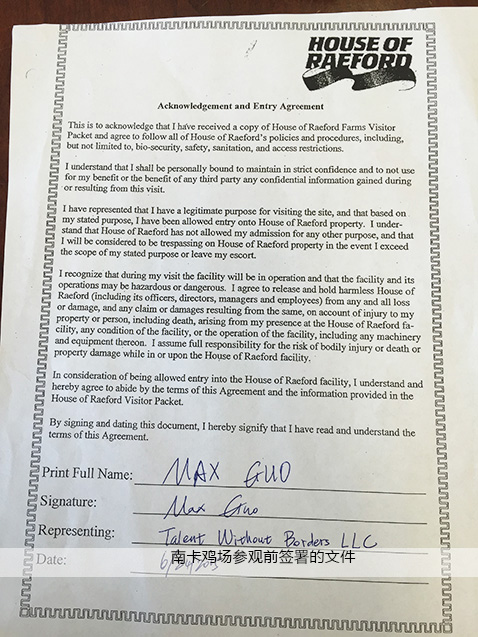 HOUSE OF
RAEFORD
Acknowledgement and Entry Agreement
This is to acknowledge that I have received a copy of House of Raeford Farms Visitor
Packet and agree to follow all of House of Raeford's policies and procedures, including,
but not limited to, bio-security, safety, sanitation, and access restrictions.
I understand that I shall be personally bound to maintain in strict confidence and to not use
for my benefit or the benefit of any third party any confidential information gained during
or resulting from this visit.
I have represented that I have a legitimate purpose for visiting the site, and that based on
my stated purpose, I have been allowed entry onto House of Raeford property. I under-
stand that House of Raeford has not allowed my admission for any other purpose, and that
I will be considered to be trespassing on House of Raeford property in the event I exceed
the scope of my stated purpose or leave my escort.
I recognize that during my visit the facility will be in operation and that the facility and its
operations may be hazardous or dangerous. I agree to release and hold harmless House of
Raeford (including its officers, directors, managers and employees) from any and all loss
or damage, and any claim or damages resulting from the same, on account of injury to my
property or person, including death, arising from my presence at the House of Raeford fa-
cility, any condition of the facility, or the operation of the facility, including any machinery
and equipment thereon. I assume full responsibility for the risk of bodily injury or death or
property damage while in or upon the House of Raeford facility.
In consideration of being allowed entry into the House of Raeford facility, I understand and
hereby agree to abide by the terms of this Agreement and the information provided in the
House of Raeford Visitor Packet.
By signing and dating this document, I hereby signify that I have read and understand the
terms of this Agreement.
Print Full Name: MAX GUO
Signature: Max Guo
Representing: Talent Without Borders LLC
南卡鸡场参观前签署的文件
Date: